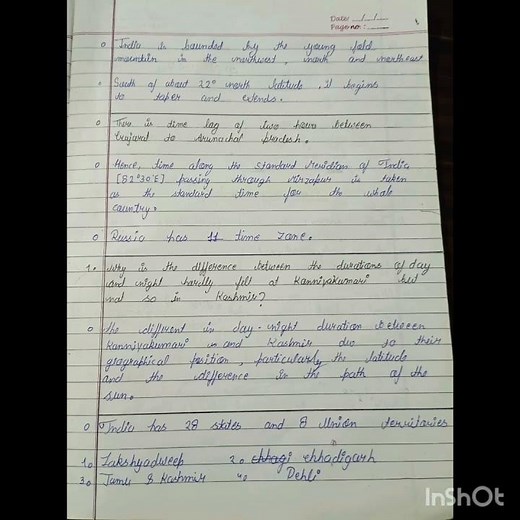 Date: __/__/__
Page no: ____
o India is bounded by the young fold
mountain in the northwest, north and northeast
o South of about 22° north latitude, it begins
to taper and extends.
o There is time lag of two hours between
Gujarat to Arunachal pradesh.
o Hence, time along the standard Meridian of India
[82°30'E] passing through Mirzapur is taken
as the standard time for the whole
country.
o Russia has 11 time zone.
1. Why is the difference between the durations of day
and night hardly felt at Kanniyakumari but
not so in Kashmir?
o the different in day-night duration between
Kanniyakumari and Kashmir due to their
geographical position, particularly the latitude
and the difference in the path of the
sun.
o India has 28 states and 8 Union territories
1. Lakshyadweep 2. chhadigarh
3. Jamu & Kashmir 4. Dehli
InShOt